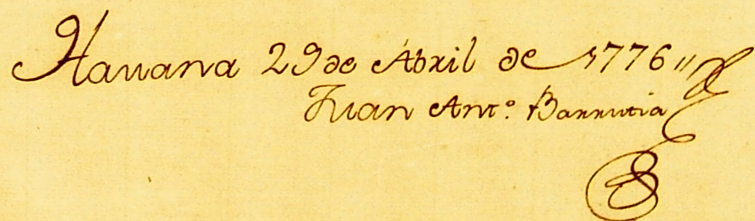 Havana 29 de Abril de 1776"
Juan Ant.º Barrutia